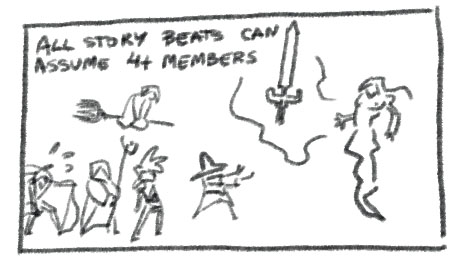 ALL STORY BEATS CAN
ASSUME 4+ MEMBERS